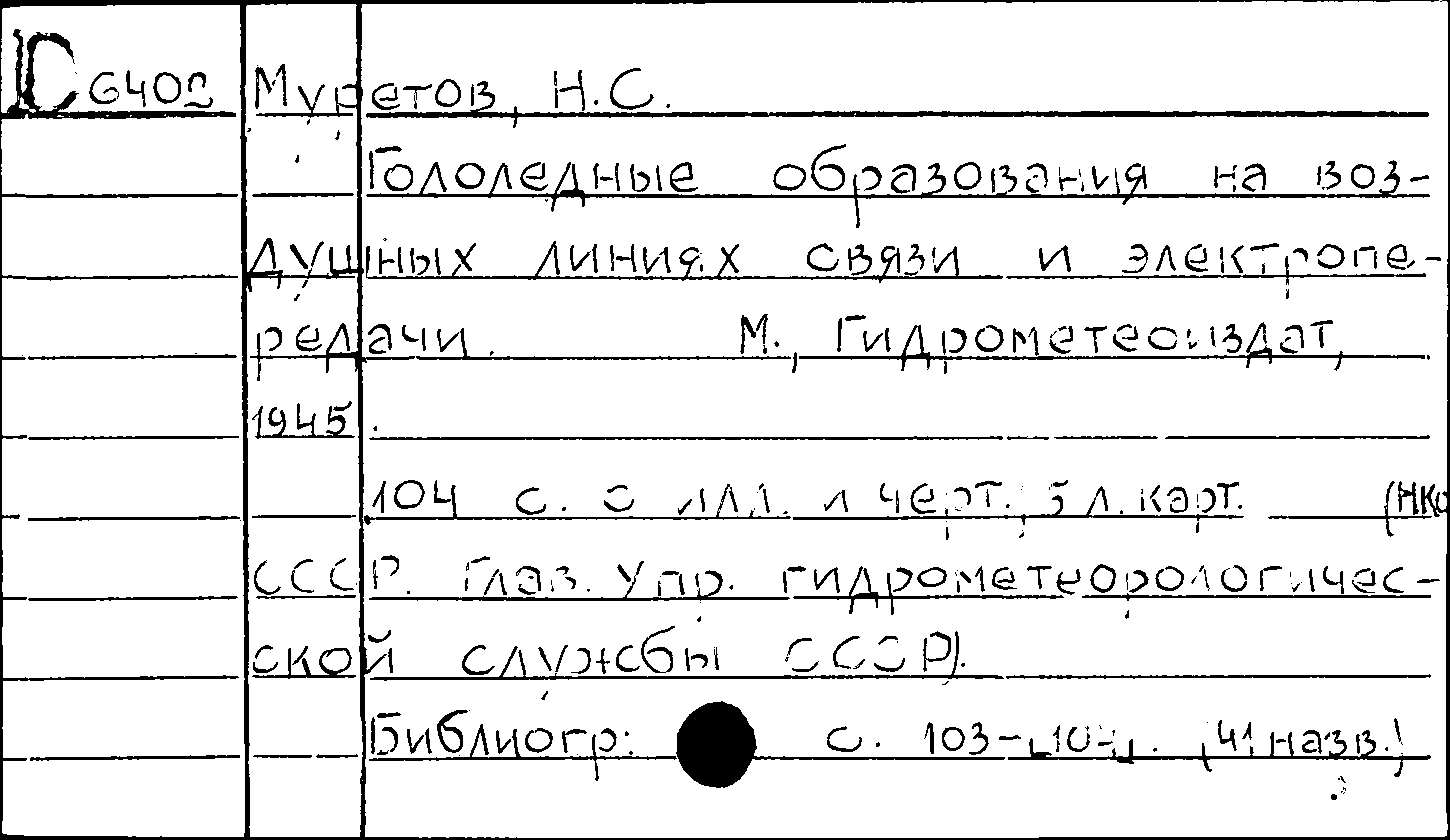 D 6402 Муретов, Н.С.
Гололедные образования на воз-
душных линиях связи и электропе-
редачи. М., Гидрометеоиздат,
1945.
104 с. с илл. и черт.; 5 л. карт.
СССР. Глав. упр. гидрометеорологичес-
ской службы СССР).
Библиогр: с. 103-104. (41 назв.)